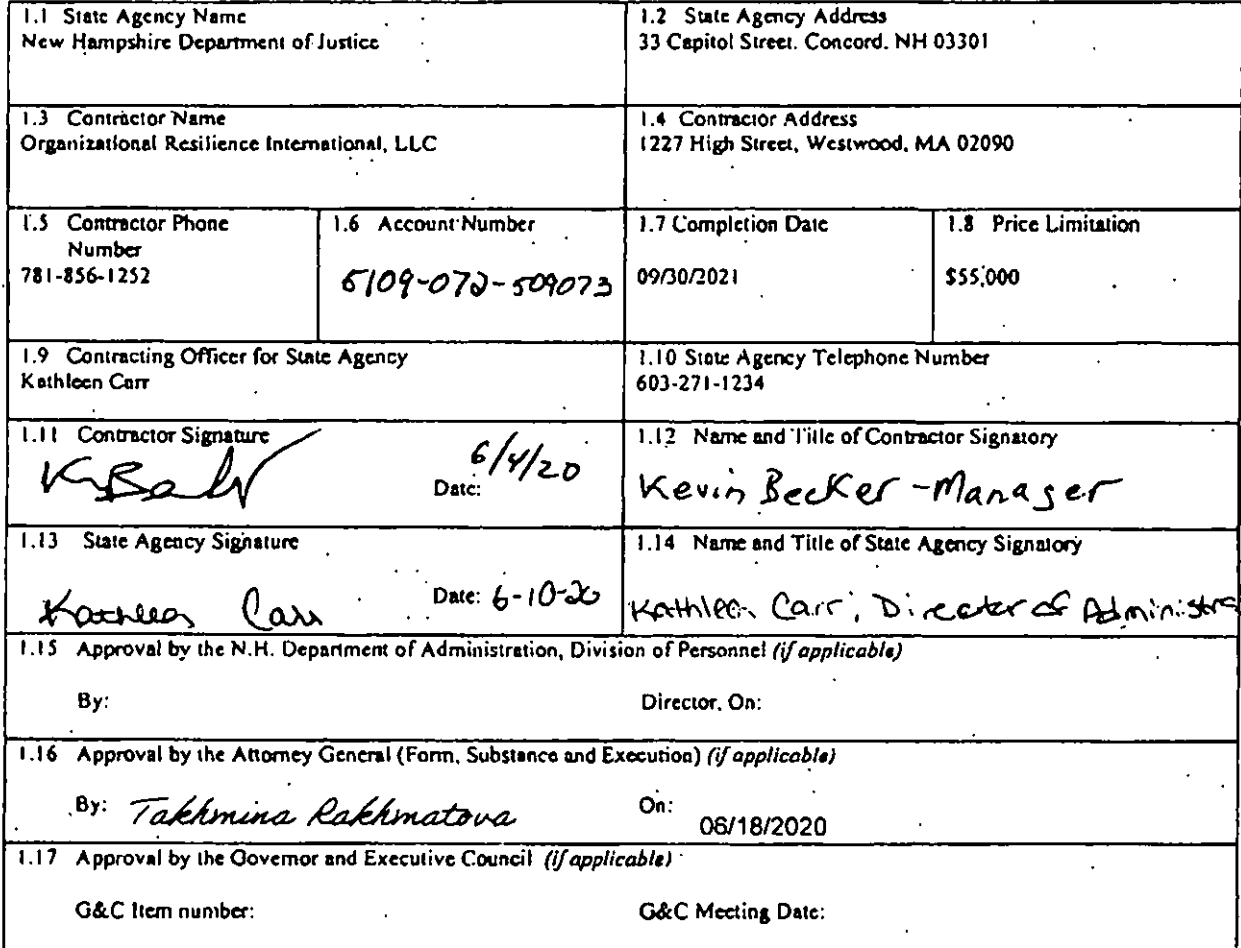 1.1 State Agency Name
New Hampshire Department of Justice
1.2 State Agency Address
33 Capitol Street. Concord. NH 03301
1.3 Contractor Name
Organizational Resilience International, LLC
1.4 Contractor Address
1227 High Street, Westwood, MA 02090
1.5 Contractor Phone
Number
781-856-1252
1.6 Account Number
5109-072-509073
1.7 Completion Date
09/30/2021
1.8 Price Limitation
$55,000
1.9 Contracting Officer for State Agency
Kathleen Carr
1.10 State Agency Telephone Number
603-271-1234
1.11 Contractor Signature
Date: 6/4/20
1.12 Name and Title of Contractor Signatory
Kevin Becker - Manager
1.13 State Agency Signature
Kathleen Carr
Date: 6-10-20
1.14 Name and Title of State Agency Signatory
Kathleen Carr, Director of Administra
1.15 Approval by the N.H. Department of Administration, Division of Personnel (if applicable)
By:
Director, On:
1.16 Approval by the Attorney General (Form, Substance and Execution) (if applicable)
By: Takhmina Rakhmatova
On: 06/18/2020
1.17 Approval by the Governor and Executive Council (if applicable)
G&C Item number:
G&C Meeting Date: